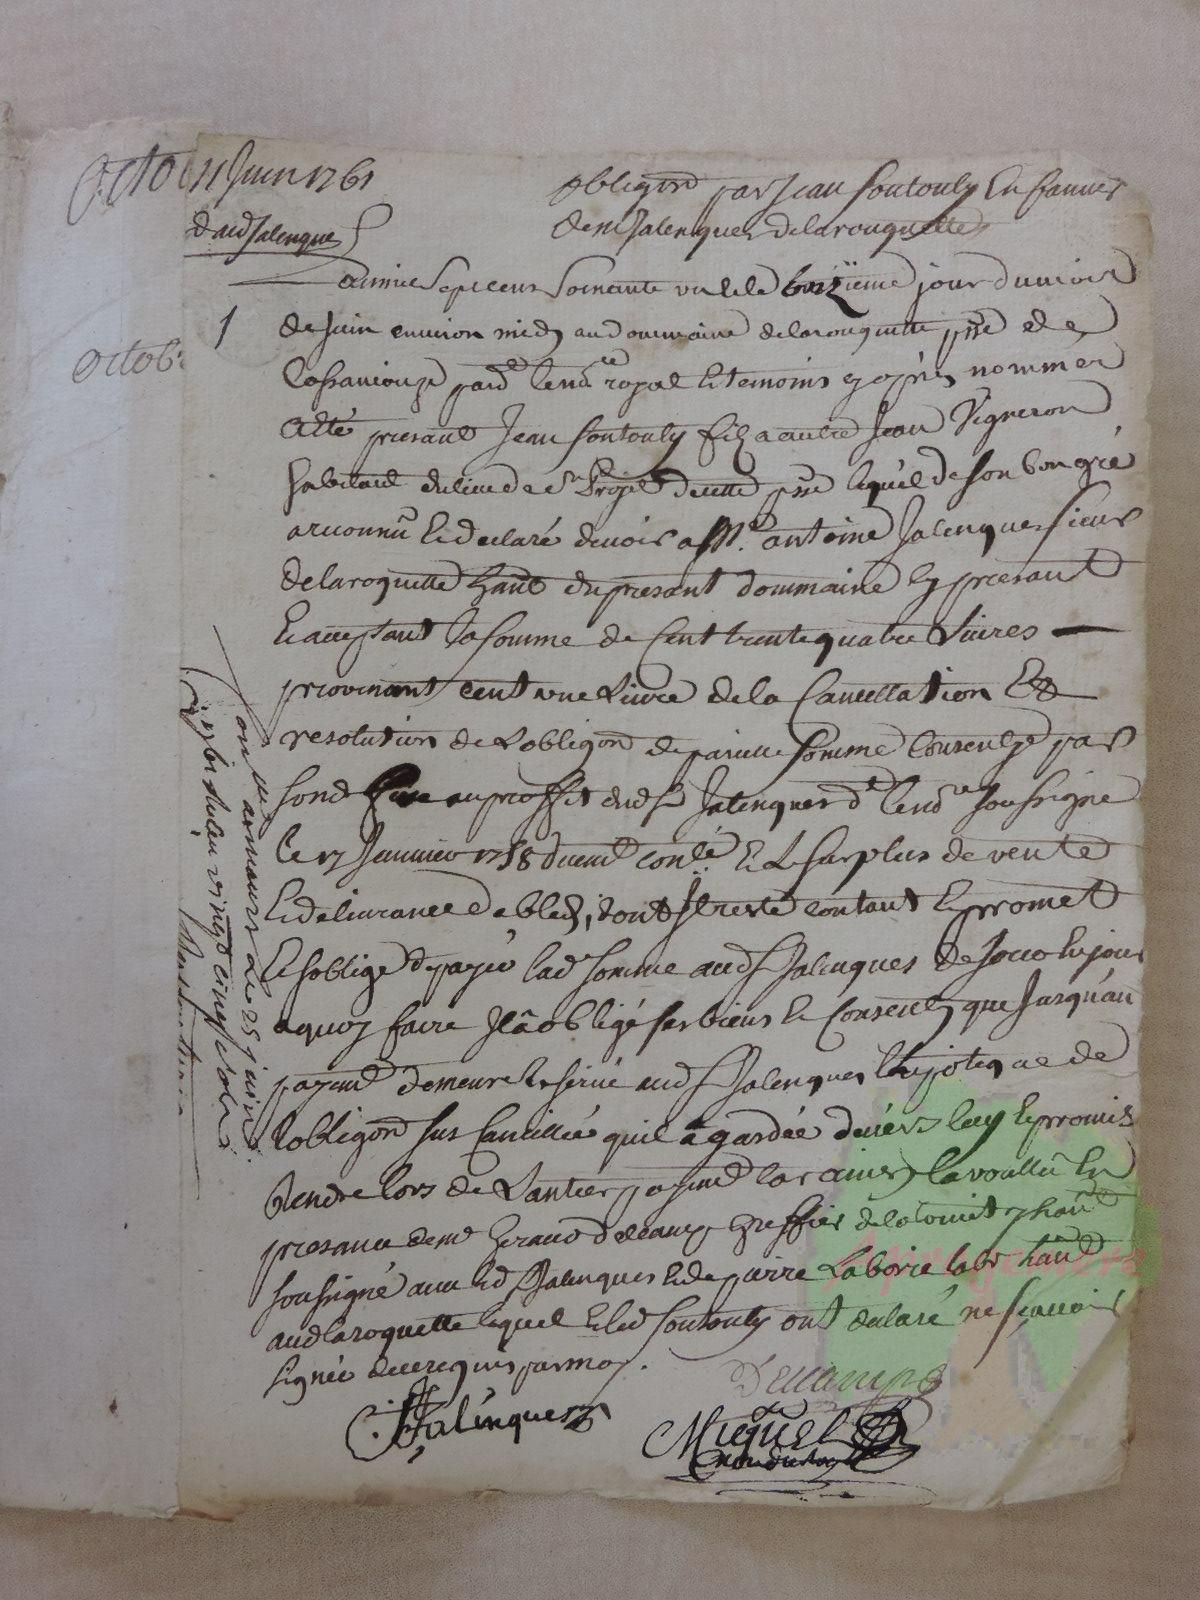 Octo
11 Juin 1761
d aud Jalenques
obliga͞on par Jean Soutouly en faveur
de mr Jalenques de larouquette
Octob
L'an mil sept cens soixante un et le onzième jour du mois
1
de Juin environ midy au dommaine de larouquette psse de
Lassaniouze pard͞ le no͞re royal et temoins cy après nommes
a été presant Jean Soutouly fils a autre Jean Vigneron
habitant du lieu de St Projet de cette psse lequel de son bon gré
a reconnu et declaré devoir a Mr. antoine Jalenques sieur
de laroquette ha͞nt du presant dommaine cy presant
et acceptant la somme de Cent trente quatre Livres —
provenant cent une Livre de la Cancellation et
resolution de L'obliga͞on de pareille somme consentye par
sond pere au proffit dud sr Jalenques dt le no͞re soussigné
le 17 Janvier 1758 duem͞t con͞lé et le surplus de vente
et delivrance de bled, dont Jl reste contant et promet
et soblige de payer lad somme aud sr Jalenques de jour en jour
a quoy faire Jl a obligé ses biens et Consenty que Jusqu'au
payem͞t demeure reservé aud sr Jalenques l'hypoteque de
L'obliga͞on sus Cancellée qu'il a gardée devers luy et promis
rendre lors de L'antier payem͞t la ainsy la voullu en
presance de mr Geraud Descamps greffier de la comté y ha͞nt
soussigné avec led sr Jalenques et de pierre Laborie labr ha͞nt
aud laroquette lequel et led Soutouly ont declaré ne sçavoir
signer de ce requis par moy.
Jalenques
Descamps
Miquel
no͞re royal
Con͞lé a maurs le 25 juin
1761 Reçu vingt cinq sols